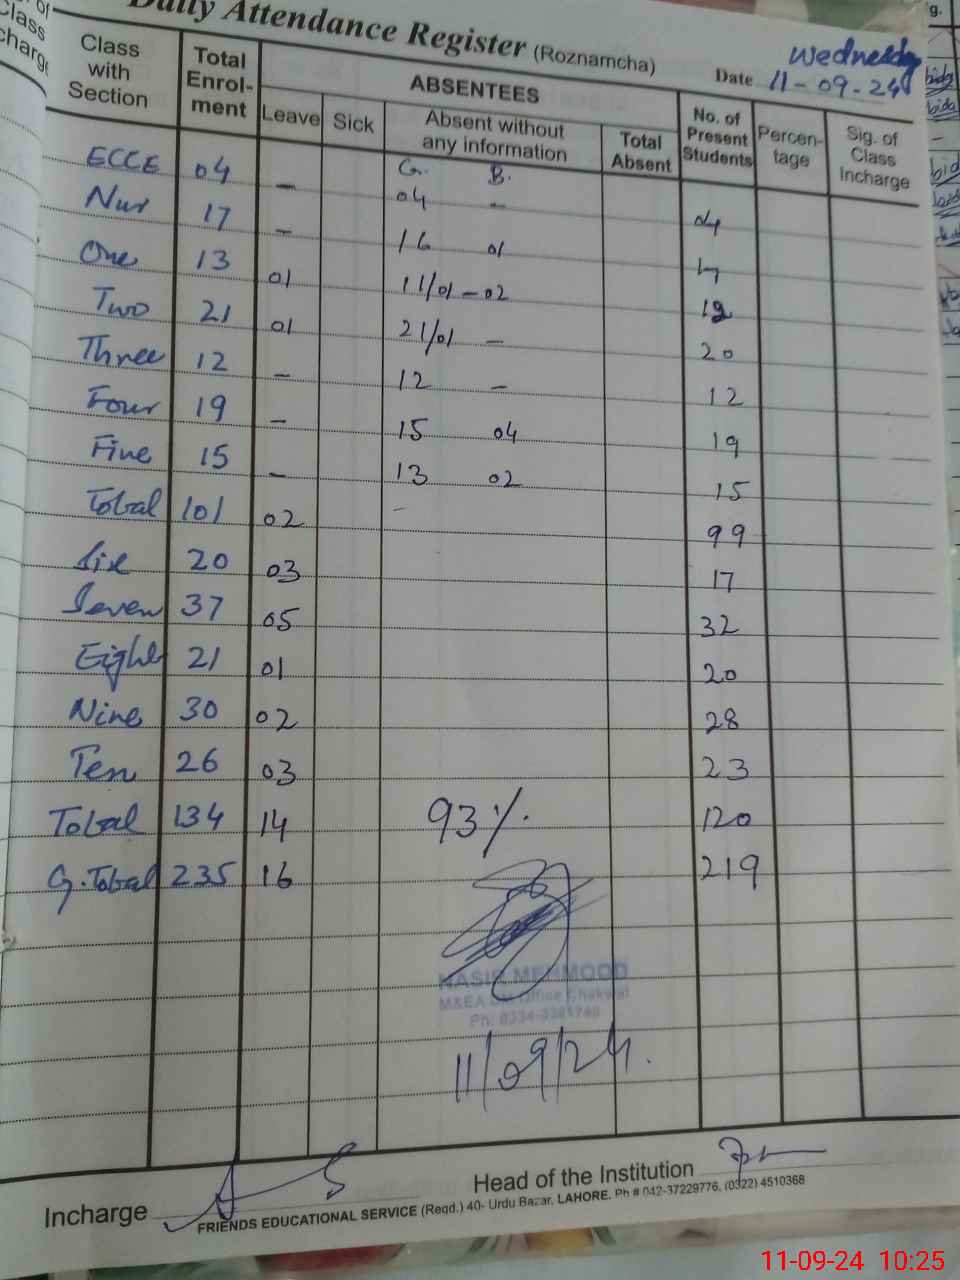 Daily Attendance Register (Roznamcha)
Wednesday
Date 11-09-24
Class with Section
Total Enrol-ment
ABSENTEES
Leave
Sick
Absent without any information
Total Absent
No. of Present Students
Percen-tage
Sig. of Class Incharge
G. B.
ECCE 04 - 04 - 04
Nur 17 - 16 01 17
One 13 01 11/01 - 02 12
Two 21 01 21/01 - 20
Three 12 - 12 - 12
Four 19 - 15 04 19
Five 15 - 13 02 15
Total 101 02 - 99
Six 20 03 17
Seven 37 05 32
Eight 21 01 20
Nine 30 02 28
Ten 26 03 23
Total 134 14 93% 120
G.Total 235 16 219
NASIR MEHMOOD
M&EA Office Chakwal
11/09/24.
Incharge
Head of the Institution
FRIENDS EDUCATIONAL SERVICE (Regd.) 40- Urdu Bazar, LAHORE. Ph # 042-37229776, (0322) 4510368
11-09-24 10:25